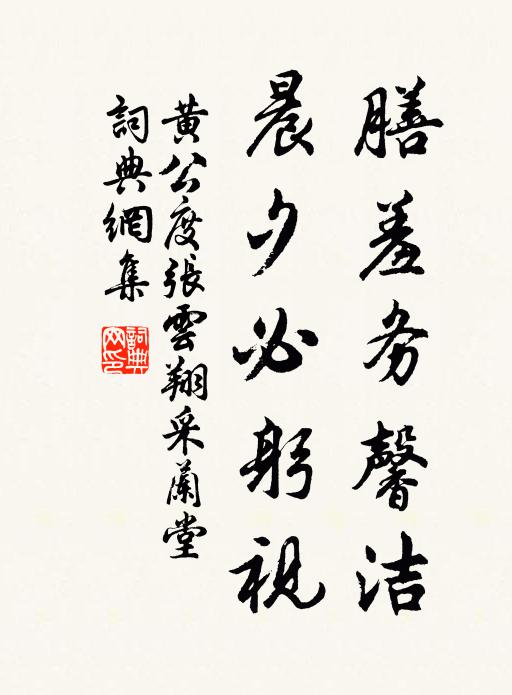 膳羞务馨洁
晨夕必躬视
黄公度张雲翔采蘭堂
詞典網集
詞典網印